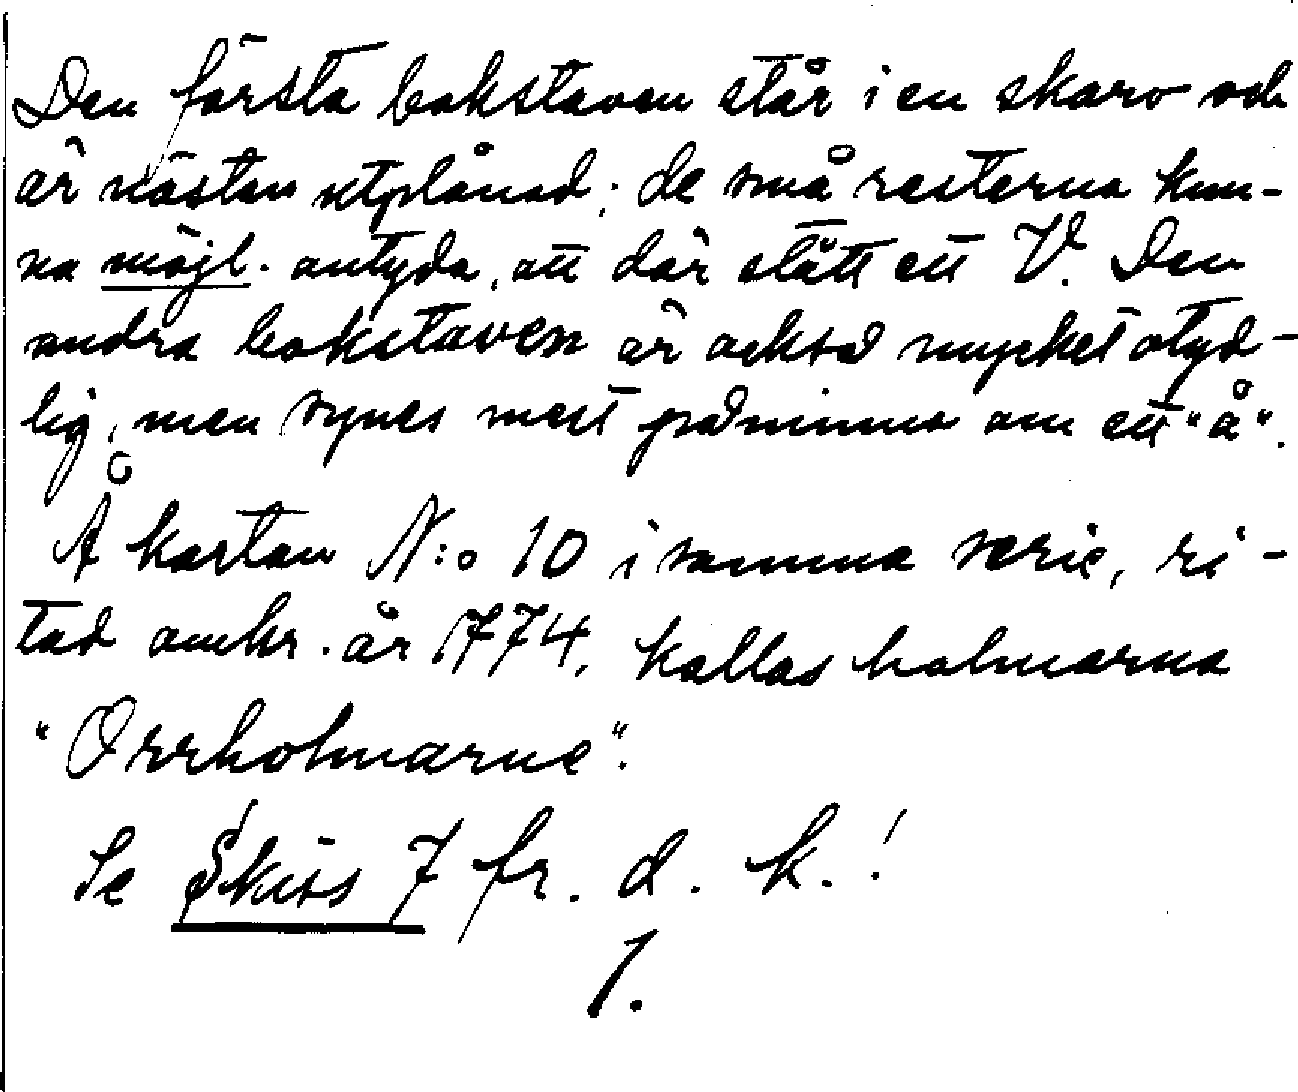 Den första bokstaven står i en skarv och
är nästan utplånad; de små resterna kun-
na möjl. antyda, att där stått ett V. Den
andra bokstaven är också mycket otyd-
lig, men synes mest påminna om ett "å".
Å kartan N:o 10 i samma serie, ri-
tad omkr. år 1774, kallas holmarna
"Orrholmarne".
Se Skiss 7 fr. d. k.!
1.